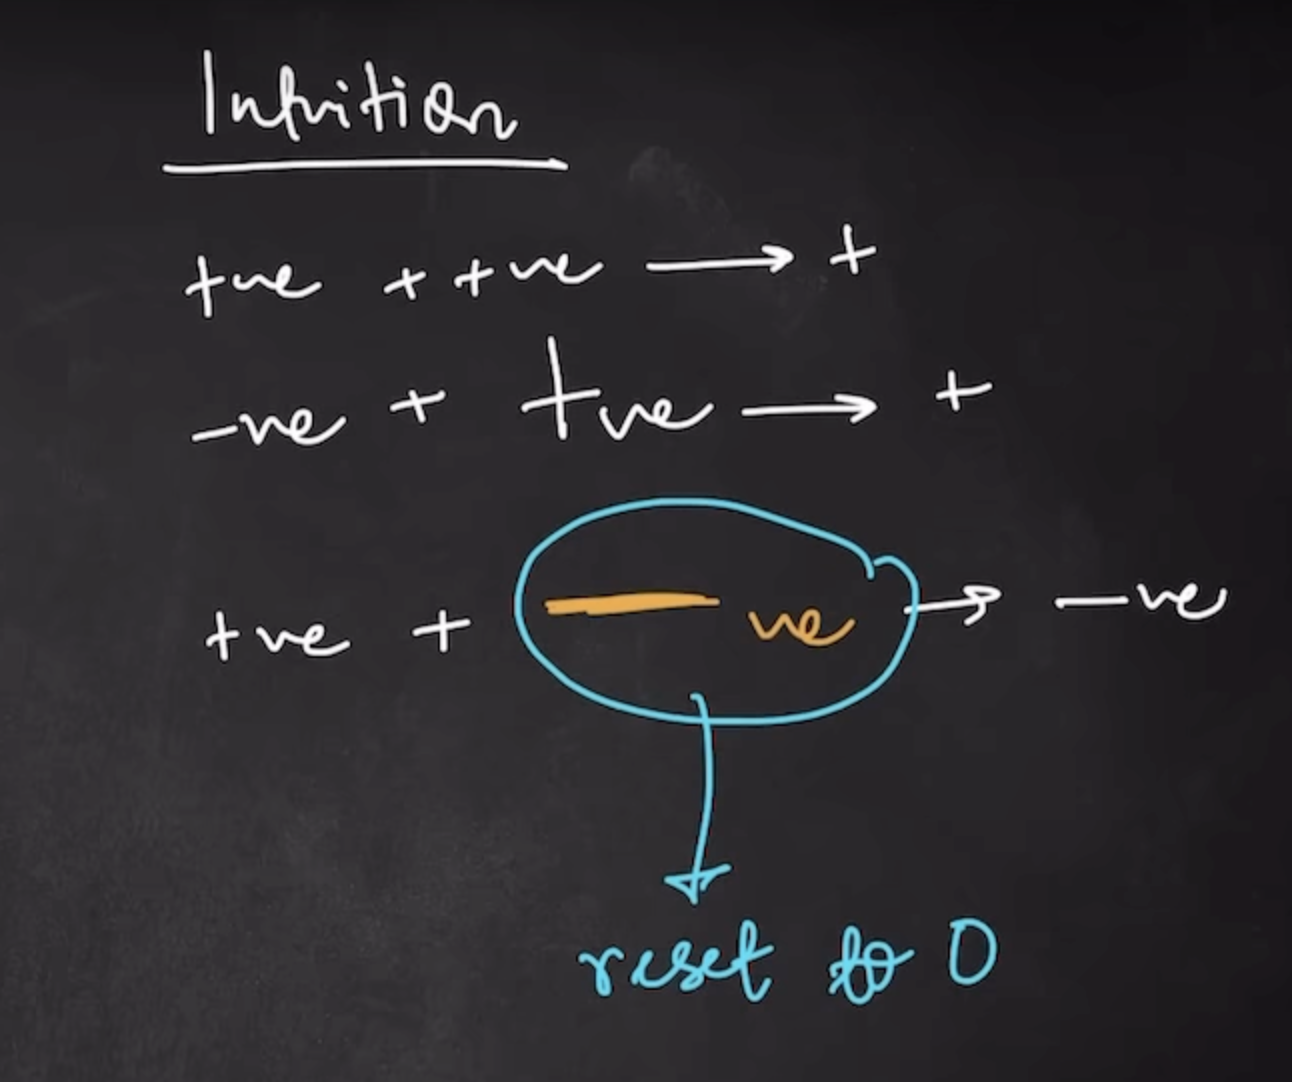 Intuition
+ve + +ve → +
-ve + +ve → +
+ve + - ve → -ve
reset to 0